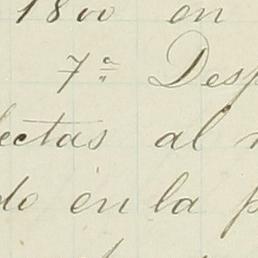 1800 en
7ª Desp
lectas al
do en la p